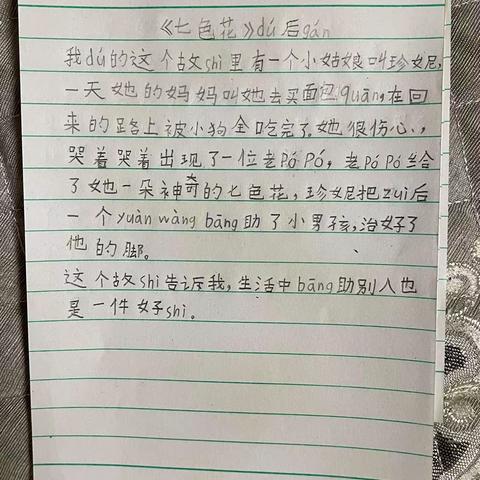 《七色花》dú后gán
我dú的这个故shì里有一个小姑娘叫珍妮,
一天她的妈妈叫她去买面包quān,在回
来的路上被小狗全吃完了,她很伤心、,
哭着哭着出现了一位老Pó Pó,老Pó Pó给
了她一朵神奇的七色花,珍妮把zuì后
一个yuàn wàng bāng助了小男孩,治好了
他的脚。
这个故shì告诉我,生活中bāng助别人也
是一件好shì。